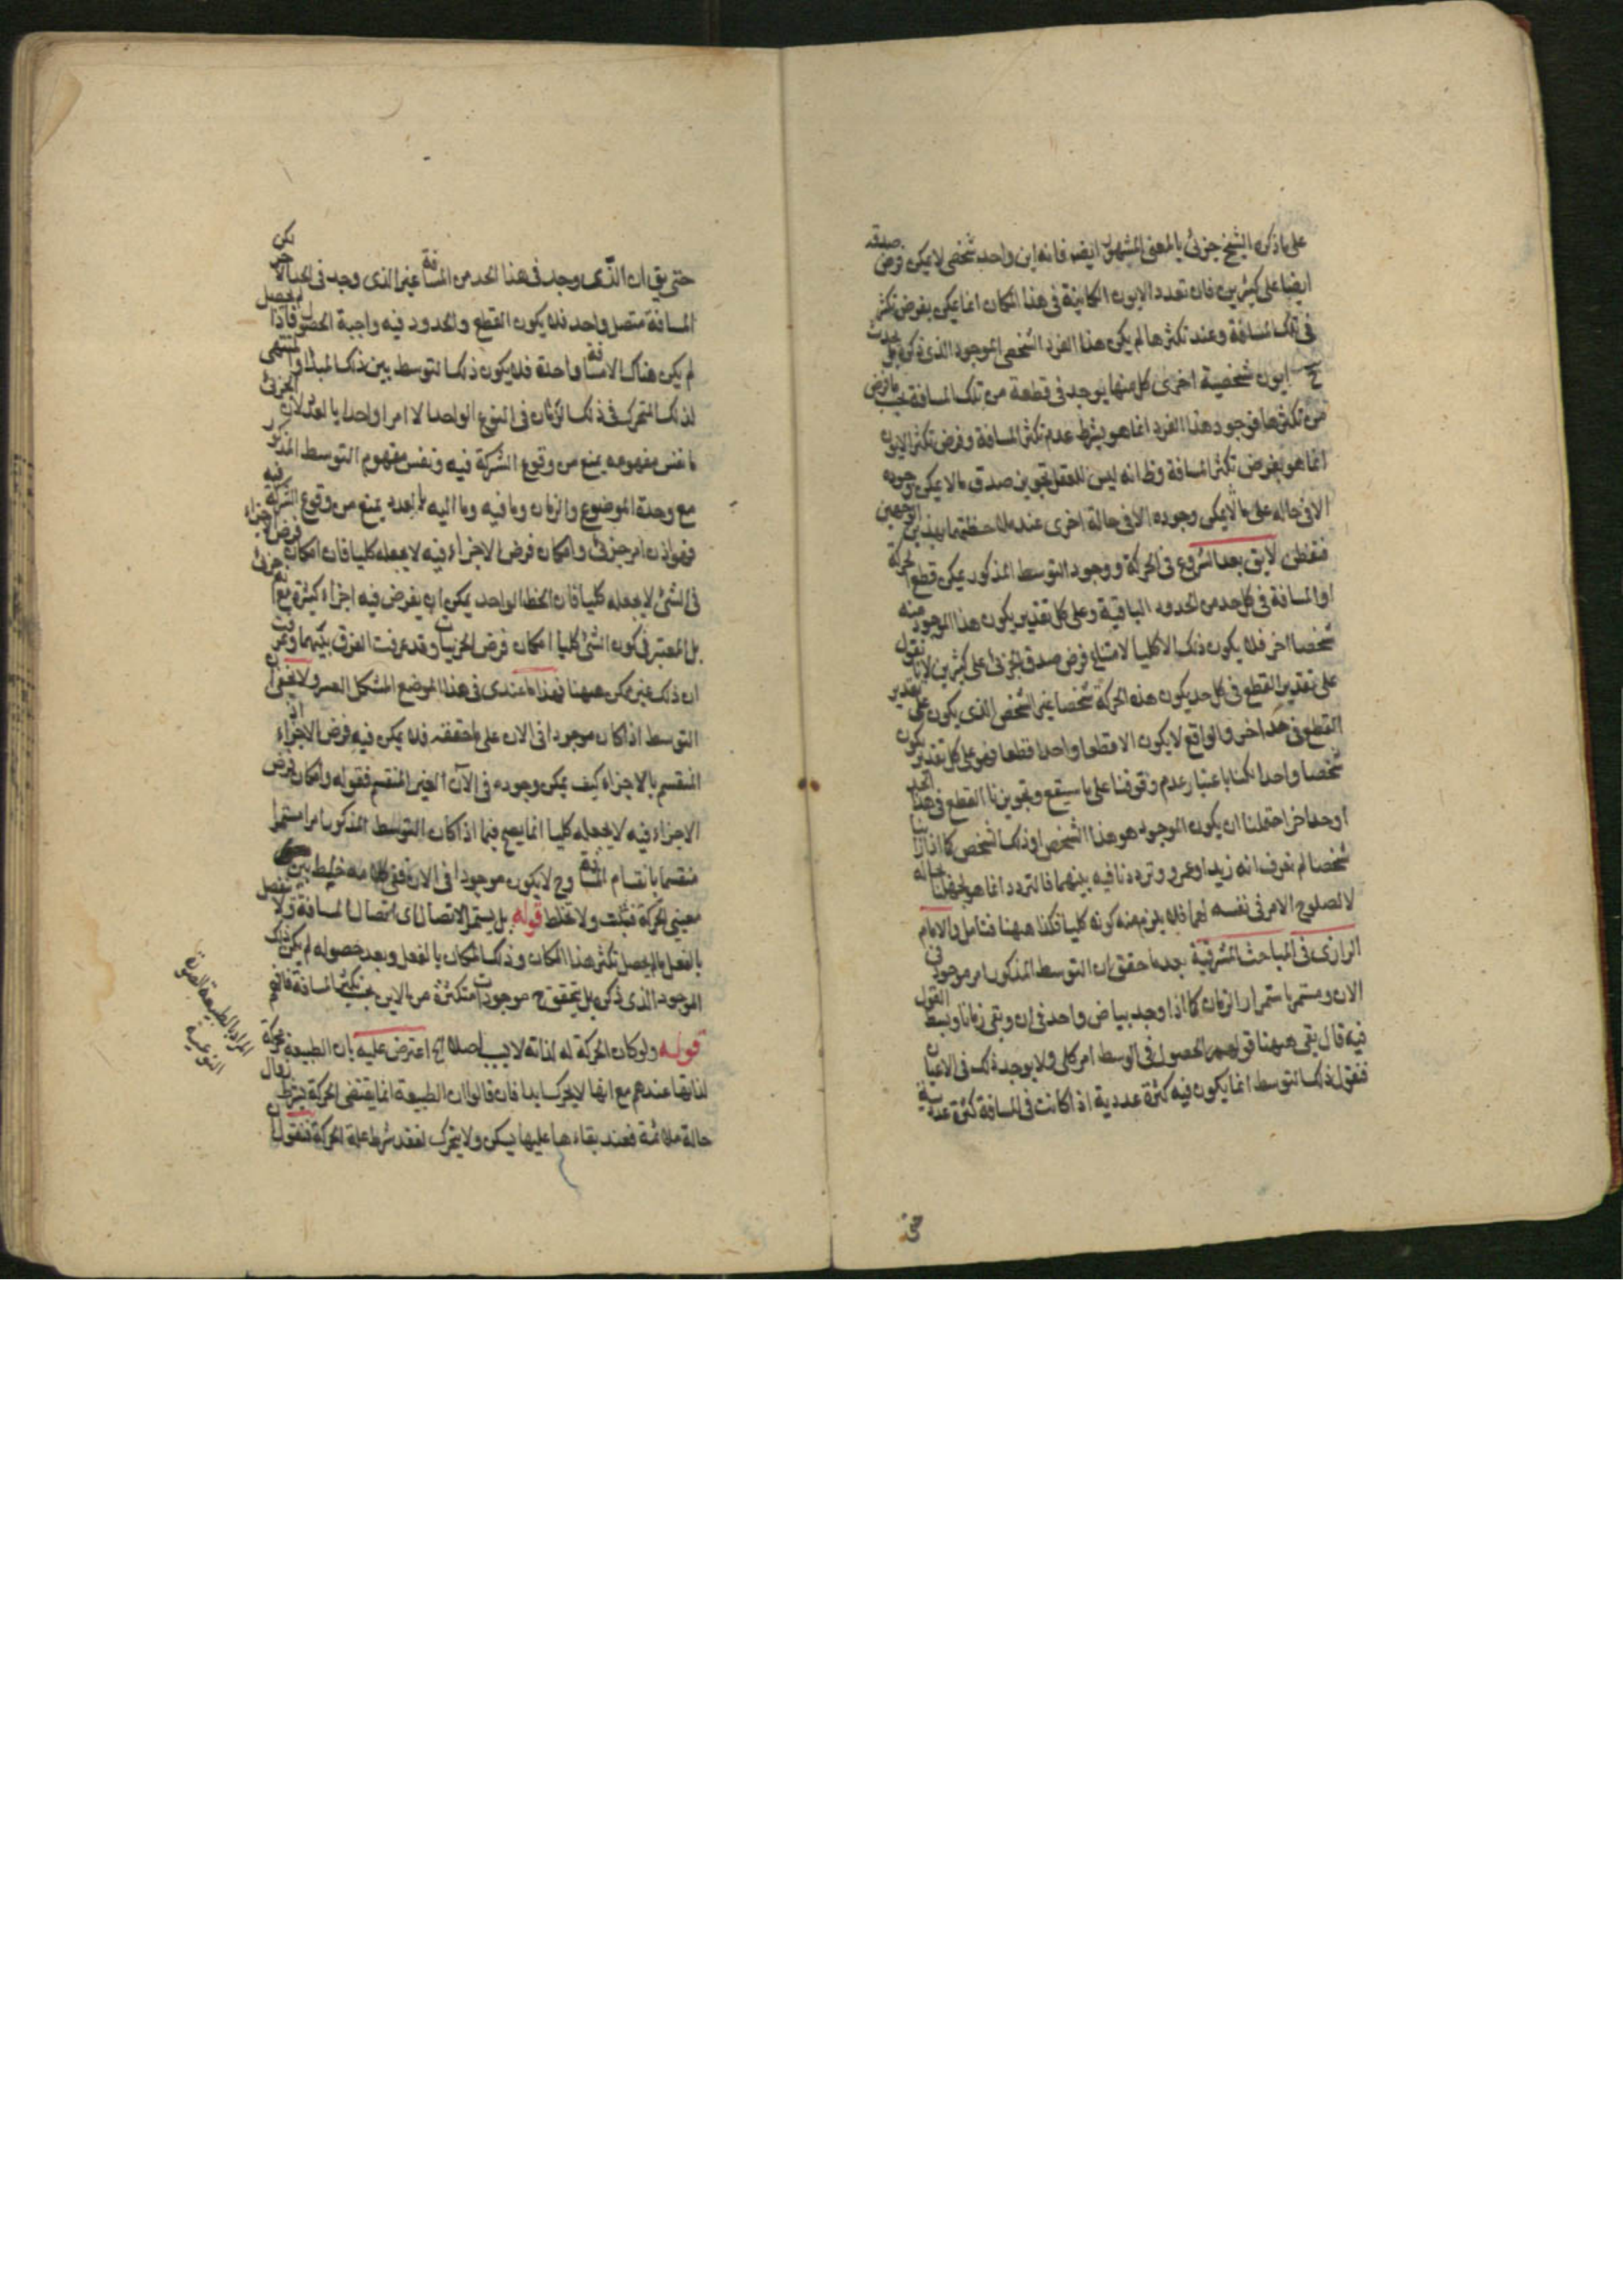 على ما ذكره الشيخ جزئى بالمعنى المشهور ايضا فانه اين واحد شخصى لا يمكن فرض صدقه
ايضا على كثيرين فان تعدد الايون الكاينة فى هذا المكان انما يمكن بفرض تكثر
فى تلك المسافة وعند تكثرها لم يكن هذا الفرد الشخصى الموجود الذى ذكره بل يحدث
ح ايون شخصية اخرى كل منها يوجد فى قطعة من تلك المسافة بحسب ما فرض
من تكثرها فوجود هذا الفرد انما هو بشرط عدم تكثر المسافة وفرض تكثر الايون
انما هو بفرض تكثر المسافة وظ انه ليس للعقل تجويز صدق ما لا يمكن وجوده
الا فى حاله على ما لا يمكن وجوده الا فى حالة اخرى عند ملاحظتهما بهذين الوجهين
فتفطن لا يق بعد الشروع فى الحركة ووجود التوسط المذكور يمكن قطع الحركة
او المسافة فى كل حد من الحدود الباقية وعلى كل تقدير يكون هذا الموجود منه
شخصا اخر فلا يكون ذلك الا كليا لامتناع فرض صدق الجزئى على كثيرين لانا نقول
على تقدير القطع فى كل حد يكون هذه الحركة شخصا غير الشخص الذى يكون على تقدير
القطع فى حد اخر والواقع لا يكون الا قطعا واحدا قطعا فهو على كل تقدير يكون
شخصا واحدا لكنا باعتبار عدم وقوفنا على ما سيقع وتجويزنا القطع فى هذا الحد
او حد اخر احتملنا ان يكون الموجود هو هذا الشخص او ذلك الشخص كما اذا راينا
شخصا لم نعرف انه زيد او عمرو وترددنا فيه بينهما فالتردد انما هو لجهلنا بحاله
لا لصلوح الامر فى نفسه لهما فلا يلزم منه كونه كليا فكذا ههنا فتامل والامام
الرازى فى المباحث المشرقية بعد ما حقق ان التوسط المذكور امر موجود فى
الان ومستمر باستمرار الزمان كما اذا وجد بياض واحد فى ان وبقى زمانا وبسط القول
فيه قال بقى ههنا قولهم الحصول فى الوسط امر كلى ولا يوجد ذلك فى الاعيان
فنقول ذلك التوسط انما يكون فيه كثرة عددية اذا كانت فى المسافة كثرة عددية
حتى
حتى يق ان الذى وجد فى هذا الحد من المسافة غير الذى وجد فى الحد الاخر لكن
المسافة متصل واحد فلا يكون القطع والحدود فيه واجبة الحصول بالفعل فاذا
لم يكن هناك الا مسافة واحدة فلا يكون ذلك التوسط بين ذلك المبدا والمنتهى
لذلك المتحرك فى ذلك الزمان فى النوع الواحد الا امرا واحدا بالعدد لان الجزئى
ما نفس مفهومه يمنع من وقوع الشركة فيه ونفس مفهوم التوسط المذكور
مع وحدة الموضوع والزمان وما فيه وما اليه بالعدد يمنع من وقوع الشركة فيه
فهو اذن امر جزئى وامكان فرض الاجزاء فيه لا يجعله كليا فان امكان فرض اجزاء
فى الشئ لا يجعله كليا فان الخط الواحد يمكن ان يفرض فيه اجزاء كثيرة مع انه جزئى
بل المعتبر فى كون الشئ كليا امكان فرض الجزئيات وقد عرفت الفرق بينهما وعرفت
ان ذلك غير ممكن ههنا فهذا ما عندى فى هذا الموضع المشكل العسر ولا يخفى ان
التوسط اذا كان موجودا فى الان على ما حققه فلا يمكن فيه فرض الاجزاء اذ
المنقسم بالاجزاء كيف يمكن وجوده فى الآن الغير المنقسم فقوله وامكان فرض
الاجزاء فيه لا يجعله كليا انما يصح فيما اذا كان التوسط المذكور امرا مستمرا
منقسما بانقسام المسافة وح لا يكون موجودا فى الان ففى كلامه خليط بين
معنيى الحركة فتثبت ولا تخلط قوله بل يستمر الاتصال اى اتصال المسافة ولا تنفصل
بالفعل ما لم يحصل تكثر هذا المكان وذلك المكان بالفعل وبعد حصوله لم يكن ذلك
الموجود الذى ذكره بل يتحقق ح موجودات متكثرة من الاين بحسب تكثر المسافة فافهم
قوله ولو كان الحركة له لذاته لا بسبب اصلا الخ اعترض عليه بان الطبيعة محركة
لذاتها عندهم مع انها لا يحرك ابدا فان قالوا ان الطبيعة انما يقتضى الحركة بشرط زوال
حالة ملائمة فعند بقاءها عليها يسكن ولا يتحرك لفقد شرط علة الحركة فنقول
المراد بالطبيعة الصورة
النوعية